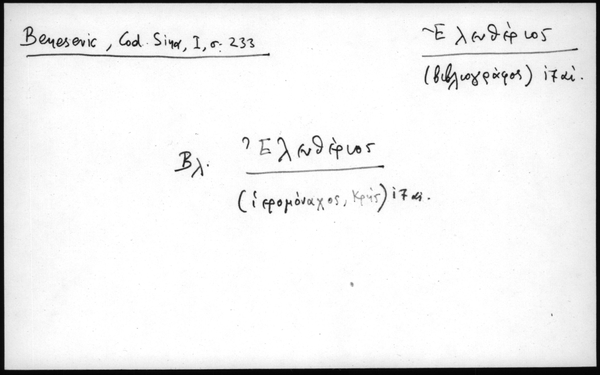 Benesevic, Cod. Sina, I, σ. 233
Ἐλευθέριος
(βιβλιογράφος) ις΄ αἰ.
Βλ. Ἐλευθέριος
(ἱερομόναχος, Κρής) ις΄ αἰ.